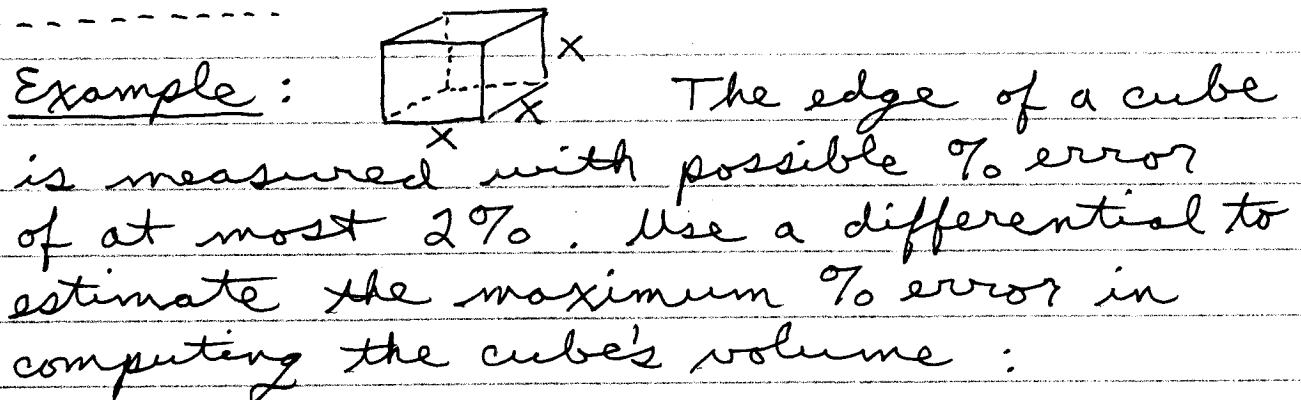 Example : x x x The edge of a cube
is measured with possible % error
of at most 2%. Use a differential to
estimate the maximum % error in
computing the cube's volume :